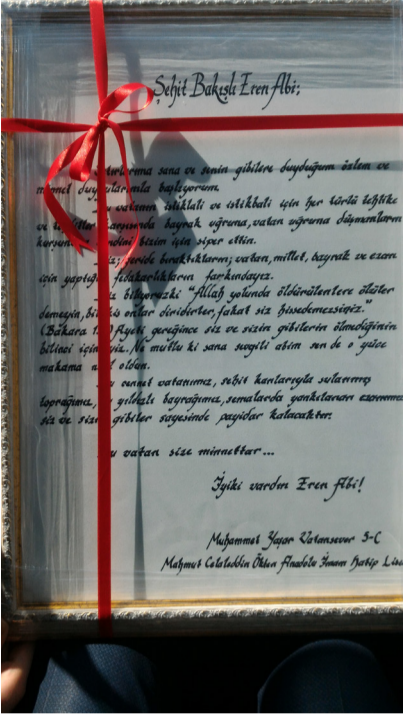 Şehit Bakışlı Eren Abi;
Satırlarıma sana ve senin gibilere duyduğum özlem ve
minnet duygularımla başlıyorum.
vatanın istiklali ve istikbali için her türlü tehlike
ve karşısında bayrak uğruna, vatan uğruna düşmanların
kendini bizim için siper ettin.
geride bıraktıkların; vatan, millet, bayrak ve ezan
için yaptığı fedakarlıkların farkındayız.
biliyoruzki "Allah yolunda öldürülenlere ölüler
demeyin, bilakis onlar diridirler, fakat siz hissedemezsiniz."
(Bakara Ayeti gereğince siz ve sizin gibilerin ölmediğinin
bilinci içindeyiz. Ne mutlu ki sana sevgili abim sen de o yüce
makama nail oldun.
cennet vatanımız, şehit kanlarıyla sulanmış
toprağımız, yıldızlı bayrağımız, semalarda yankılanan ezanımız
siz ve sizin gibiler sayesinde payidar kalacaktır.
Bu vatan size minnettar...
İyiki vardın Eren Abi!
Muhammet Yaşar Vatansever 5-C
Mahmut Celaleddin Ökten Anadolu İmam Hatip Lise